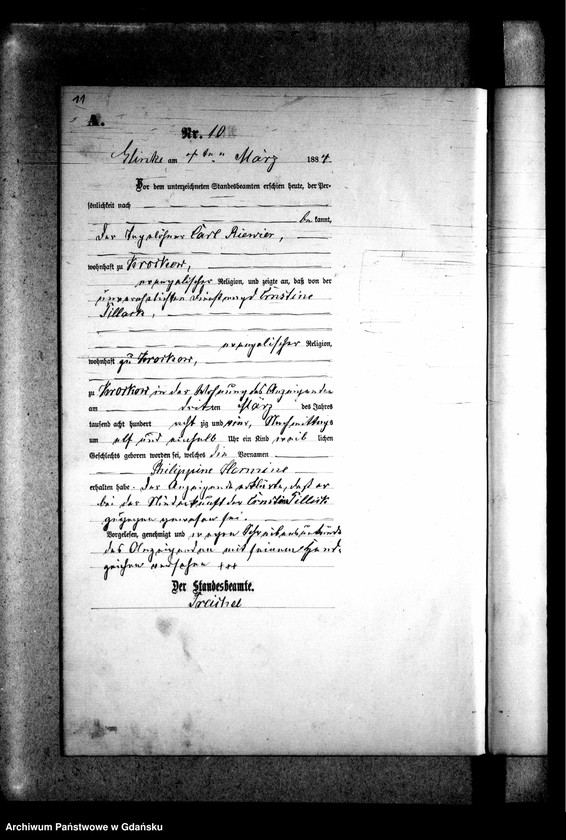 11
A.
Nr. 10
Glinke am 4ten März 1884.
Vor dem unterzeichneten Standesbeamten erschien heute, der Per-
sönlichkeit nach
be kannt,
der Tagelöhner Carl Riewier,
wohnhaft zu Krockow,
evangelischer Religion, und zeigte an, daß von der
unverehelichten Dienstmagd Ernstine
Tillack
evangelischer Religion,
wohnhaft zu Krockow,
zu Krockow in der Wohnung des Anzeigenden
am dritten März des Jahres
tausend acht hundert acht zig und vier, Nachmittags
um elf und einhalb Uhr ein Kind weib lichen
Geschlechts geboren worden sei, welches die Vornamen
Philippine Hermine
erhalten habe. Der Anzeigende erklärte, daß er
bei der Niederkunft der Ernstine Tillack
zugegen gewesen sei.
Vorgelesen, genehmigt und wegen Schreibensunkunde
des Anzeigenden mit seinem Hand-
zeichen versehen +++
Der Standesbeamte.
Treichel
Archiwum Państwowe w Gdańsku